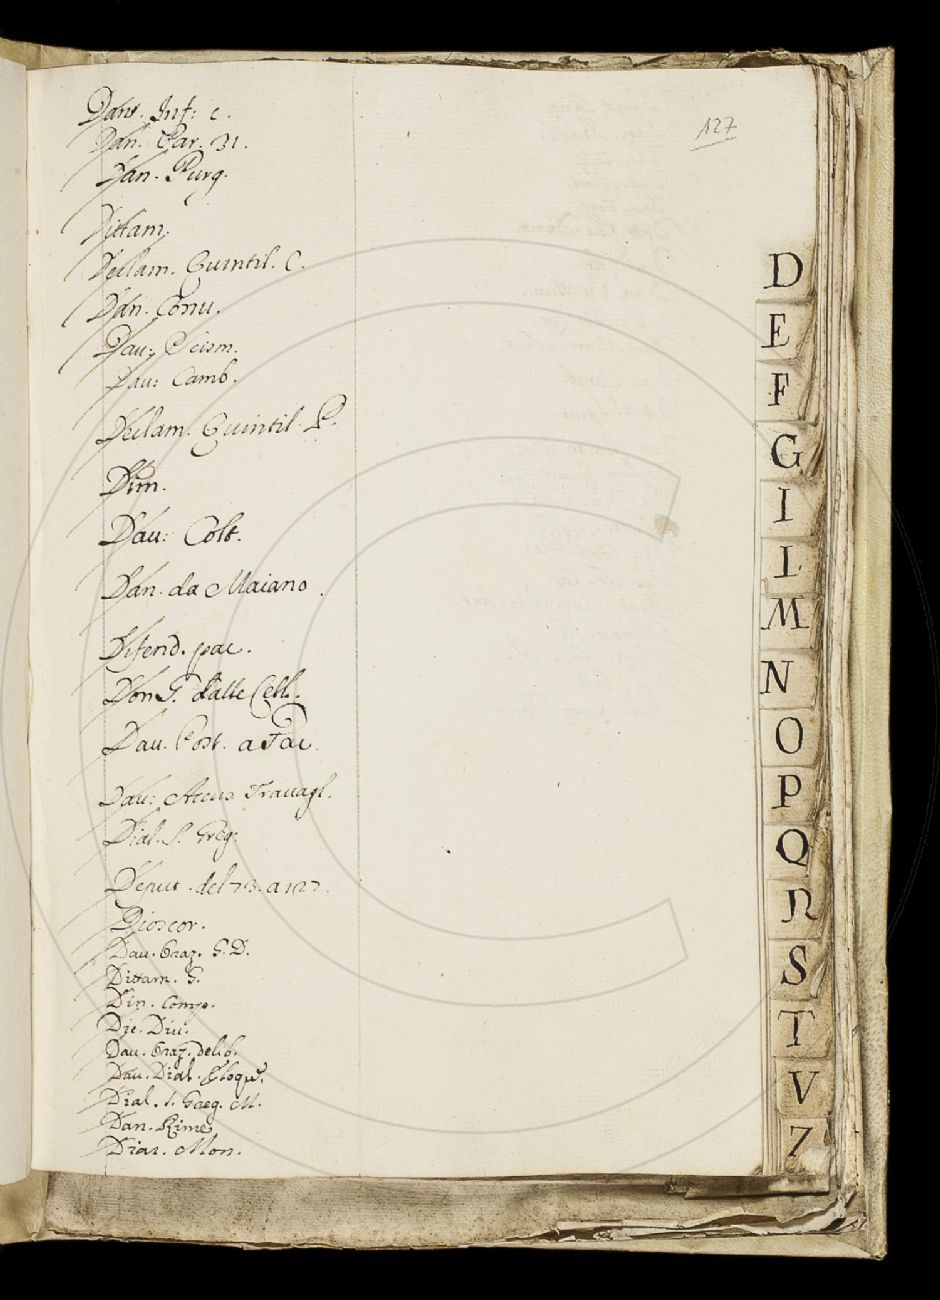 127
Dant. Inf: c.
Dan. Par. 31.
Dan. Purg.
Dittam.
Declam. Quintil. C.
Dan. Conu.
Dau: Scism.
Dau: Camb.
Declam. Quintil. P.
Dim.
Dau: Colt.
Dan. da Maiano.
Difend. pac.
Don G. dalle Cell.
Dau. Post. a Tac.
Dau: Accus Trauagl.
Dial. S. Greg.
Decret. del 73. a 127.
Dioscor.
Dau. Oraz. G. D.
Dittam. G.
Din. Comp.
Dic. Diu.
Dau. Oraz. delib.
Dau. Dial. Eloqu.
Dial. S. Greg. M.
Dan. Rime
Diar. Mon.
D
E
F
G
I
L
M
N
O
P
Q
R
S
T
V
Z